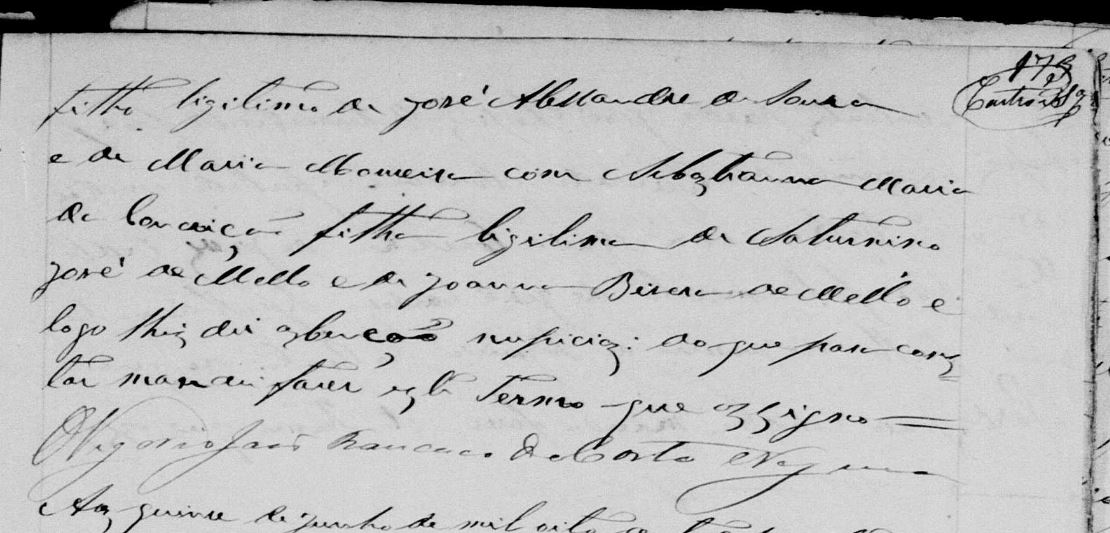 173
filho ligitimo de José Alessandre de Sousa
e de Maria Moreira com Sebastianna Maria
da Conceição filha ligitima de Saturnino
José de Mello e de Joanna Bizerra de Mello e
logo thes dei as bençoõs nupiciaes: do que para cons
tar mandei fazer este Termo que assigno =
O Vigario João Francisco da Costa Nogueira
Aos quinze de junho de mil oito